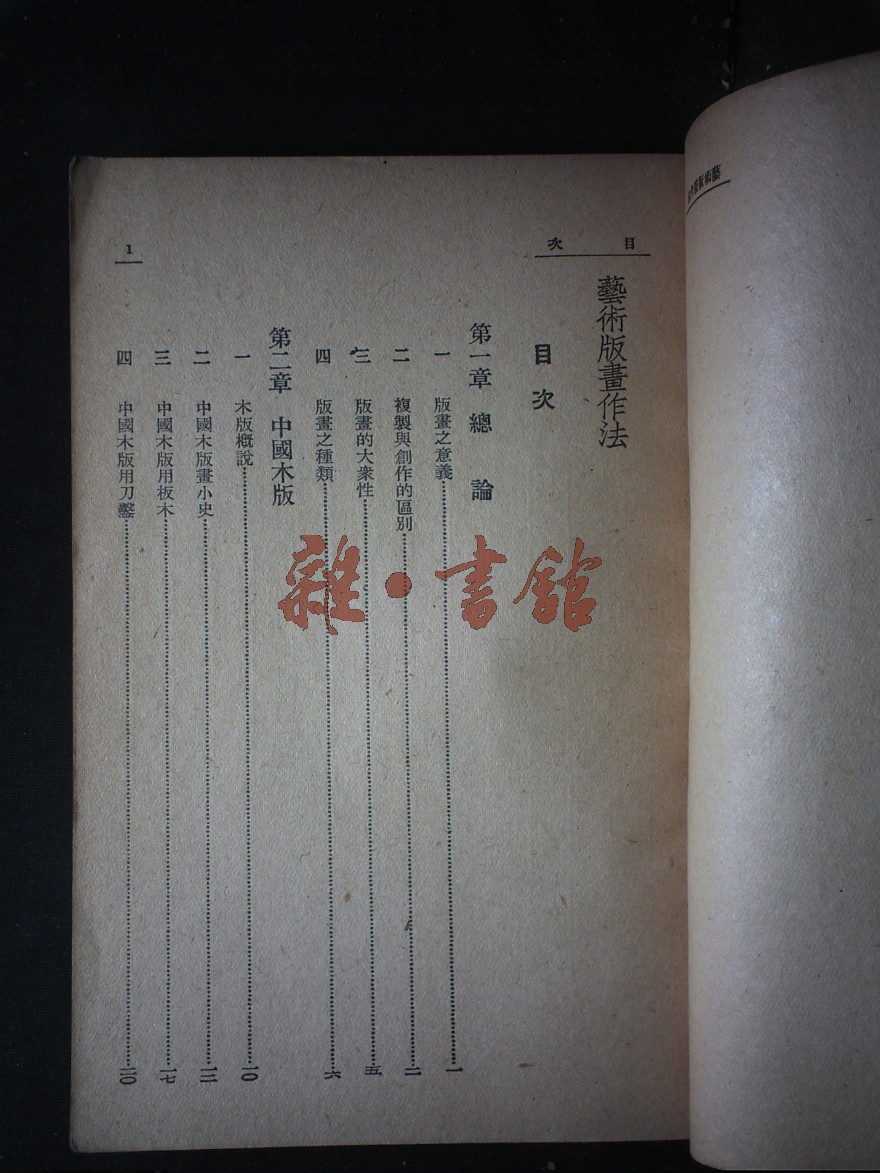 目次
1
藝術版畫作法
目次
第一章 總論
一 版畫之意義 一
二 複製與創作的區別 二
三 版畫的大衆性 五
四 版畫之種類 六
第二章 中國木版
一 木版概說 一〇
二 中國木版畫小史 一二
三 中國木版用板木 一七
四 中國木版用刀鑿 二〇
雜·書館